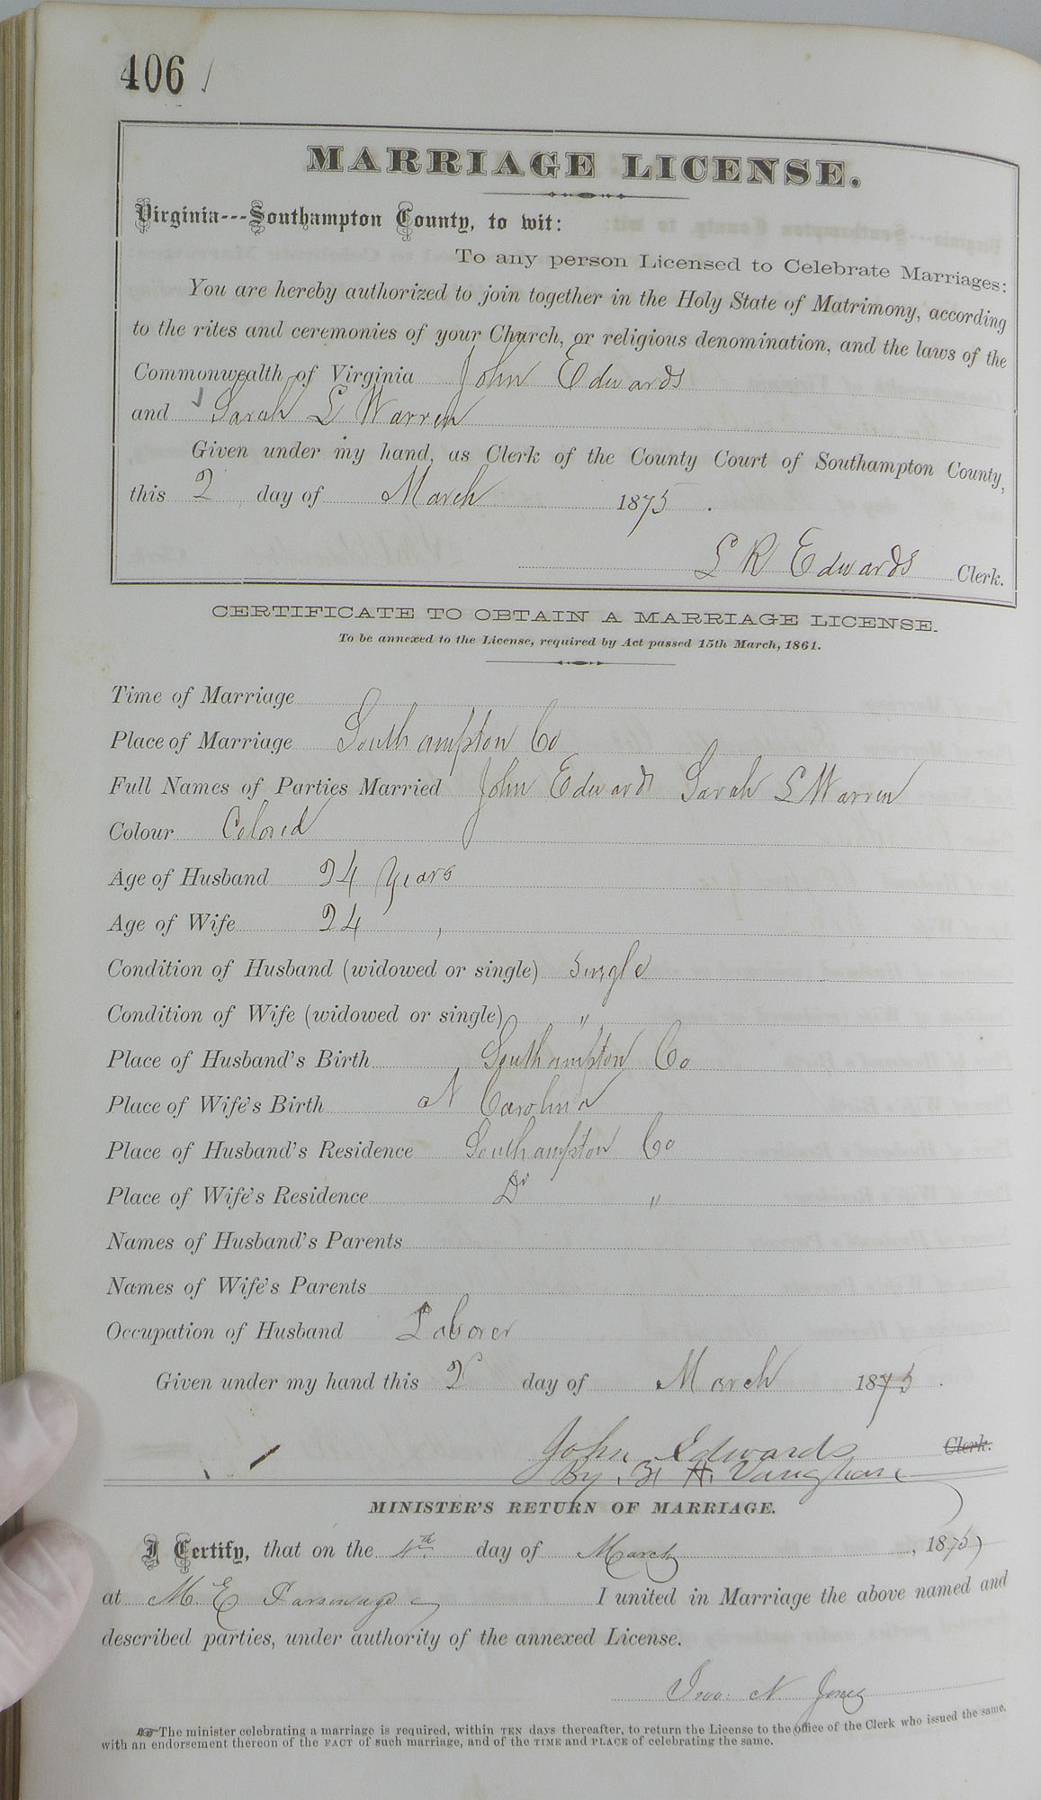 406
MARRIAGE LICENSE.
Virginia---Southampton County, to wit:
To any person Licensed to Celebrate Marriages:
You are hereby authorized to join together in the Holy State of Matrimony, according
to the rites and ceremonies of your Church, or religious denomination, and the laws of the
Commonwealth of Virginia John Edwards
and Sarah L Warren
Given under my hand, as Clerk of the County Court of Southampton County,
this 2 day of March 1875.
L R Edwards Clerk.
CERTIFICATE TO OBTAIN A MARRIAGE LICENSE.
To be annexed to the License, required by Act passed 15th March, 1861.
Time of Marriage
Place of Marriage Southampton Co
Full Names of Parties Married John Edwards Sarah L Warren
Colour Colored
Age of Husband 24 Years
Age of Wife 24 "
Condition of Husband (widowed or single) Single
Condition of Wife (widowed or single) "
Place of Husband's Birth Southampton Co
Place of Wife's Birth N Carolina
Place of Husband's Residence Southampton Co
Place of Wife's Residence Do "
Names of Husband's Parents
Names of Wife's Parents
Occupation of Husband Laborer
Given under my hand this 2 day of March 1875.
John Edwards Clerk.
By H. Vaughan
MINISTER'S RETURN OF MARRIAGE.
I Certify, that on the 4th day of March, 1875
at M. E Parsonage I united in Marriage the above named and
described parties, under authority of the annexed License.
Jno. N. Jones
The minister celebrating a marriage is required, within TEN days thereafter, to return the License to the office of the Clerk who issued the same,
with an endorsement thereon of the FACT of such marriage, and of the TIME and PLACE of celebrating the same.